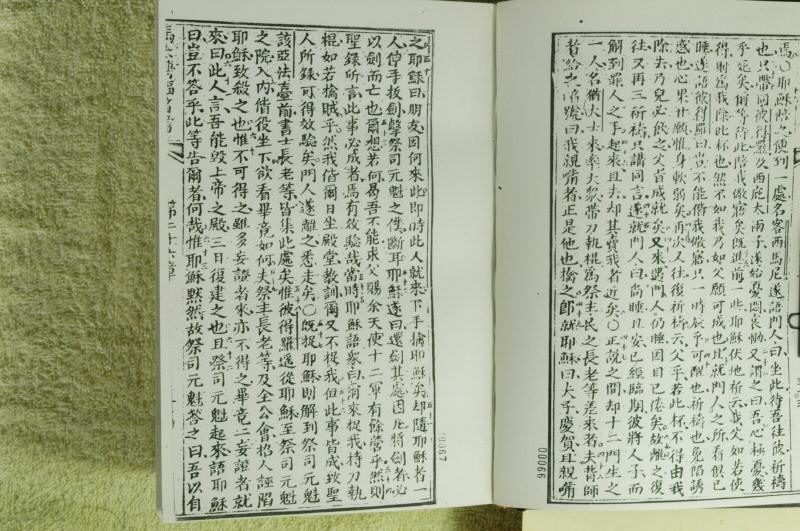 馬○耶穌陪之便到一處名客西馬尼遂語門人曰坐此待吾往彼祈禱
也只帶同彼得羅及西庇大兩子遂始憂悶哀慟又謂之曰吾心極憂幾
乎死矣爾等待此陪我儆寤矣既進前一些耶穌伏地祈云我父如若使
得則爲我除此杯也然不如我乃如父願可成也且就門人之所看伊已
睡遂語彼得羅曰豈不能偕我儆寤只一時辰乎可醒也祈禱也免陷誘
惑也心果甘願惟身軟弱矣再次又往復祈禱云父乎若此杯不得由我
除去乃兒必飲之父旨成就矣又來遇門人仍睡因目已倦矣故離之復
往又再三祈禱只講同言遂就門人曰尚睡且安已經臨期彼將人子而
解到罪人之手起來且去却其賣我者近矣○正說之間却十二門生之
一人名猶大士來率大眾帶刀執棍爲祭主民之長老等差來者夫背師
者給之號曰我親嘴者正是他也擒之即就耶穌曰夫子慶賀且親嘴
00066
之耶穌曰朋友因何來此即時此人就來下手擒耶穌矣却隨耶穌者一
人伸手拔劍擊祭司元魁之僕斷耳耶穌遂曰還劍其處因凡將劍者必
以劍而亡也爾想若何曷吾不能求父賜余天使十二軍有餘營乎然則
聖錄所言此事必成者焉有效驗哉當時耶穌語衆曰爾來捉我持刀執
棍如若擒賊乎然我偕爾日坐殿堂教訓爾又不捉我但此事皆成致聖
人所錄可得效驗矣門人遂離之悉走矣○既捉耶穌則解到祭司元魁
該亞法臺前書士長老等皆集此處矣惟彼得羅遥從耶穌至祭司元魁
之院入內偕役坐下欲看畢竟如何夫祭主長老等及全公會招人誣陷
耶穌致殺之也惟不可得之雖多妄證者來亦不得之畢竟二妄證者就
來曰此人言吾能毀上帝之殿三日復建之也且祭司元魁起來語耶穌
曰豈不答乎此等告爾者何哉惟耶穌默然故祭司元魁答之曰吾以自
第二十六章
00067